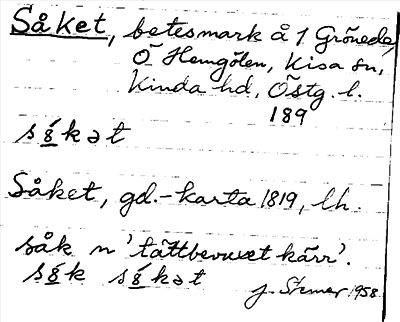 Såket, betesmark å 1 Gröneda,
Ö Hemgölen, Kisa sn,
Kinda hd, Östg. l.
189
sǻkət
Såket, gd.-karta 1819, lh.
såk n 'tättbevuxet kärr'.
sǻk sǻkət
J. Stemer 1958